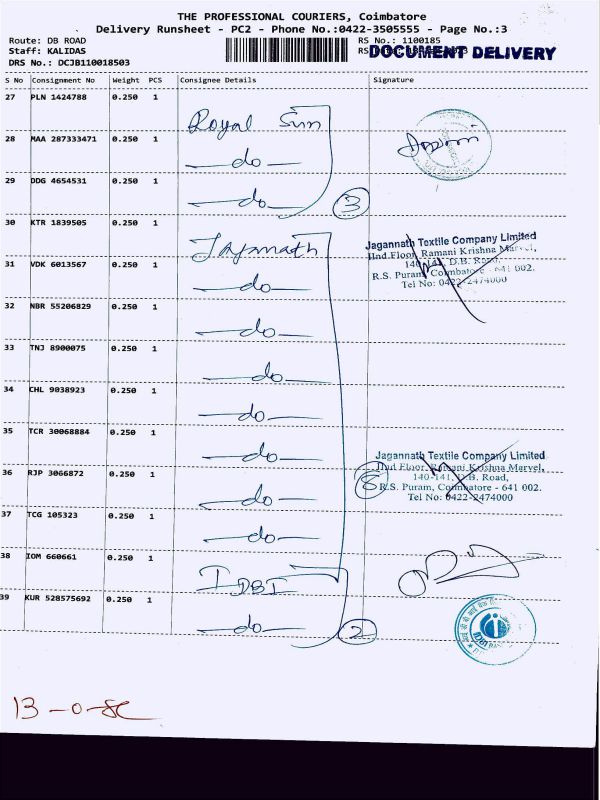 THE PROFESSIONAL COURIERS, Coimbatore
Delivery Runsheet - PC2 - Phone No.:0422-3505555 - Page No.:3
Route: DB ROAD
Staff: KALIDAS
DRS No.: DCJB110018503
RS No.: 1100185
DOCUMENT DELIVERY
S No Consignment No Weight PCS Consignee Details Signature
27 PLN 1424788 0.250 1 Royal Sun
28 MAA 287333471 0.250 1 -do-
29 DDG 4654531 0.250 1 -do- 3
30 KTR 1839505 0.250 1 Jagannath
Jagannath Textile Company Limited
IInd Floor, Ramani Krishna Marvel,
140-141, D.B. Road,
R.S. Puram, Coimbatore - 641 002.
Tel No: 0422-2474000
31 VDK 6013567 0.250 1 -do-
32 NBR 55206829 0.250 1 -do-
33 TNJ 8900075 0.250 1 -do-
34 CHL 9038923 0.250 1 -do-
35 TCR 30068884 0.250 1 -do-
Jagannath Textile Company Limited
IInd Floor, Ramani Krishna Marvel,
140-141, D.B. Road,
R.S. Puram, Coimbatore - 641 002.
Tel No: 0422-2474000
36 RJP 3066872 0.250 1 -do- 8
37 TCG 105323 0.250 1 -do-
38 IOM 660661 0.250 1 IDBI
39 KUR 528575692 0.250 1 -do- 2